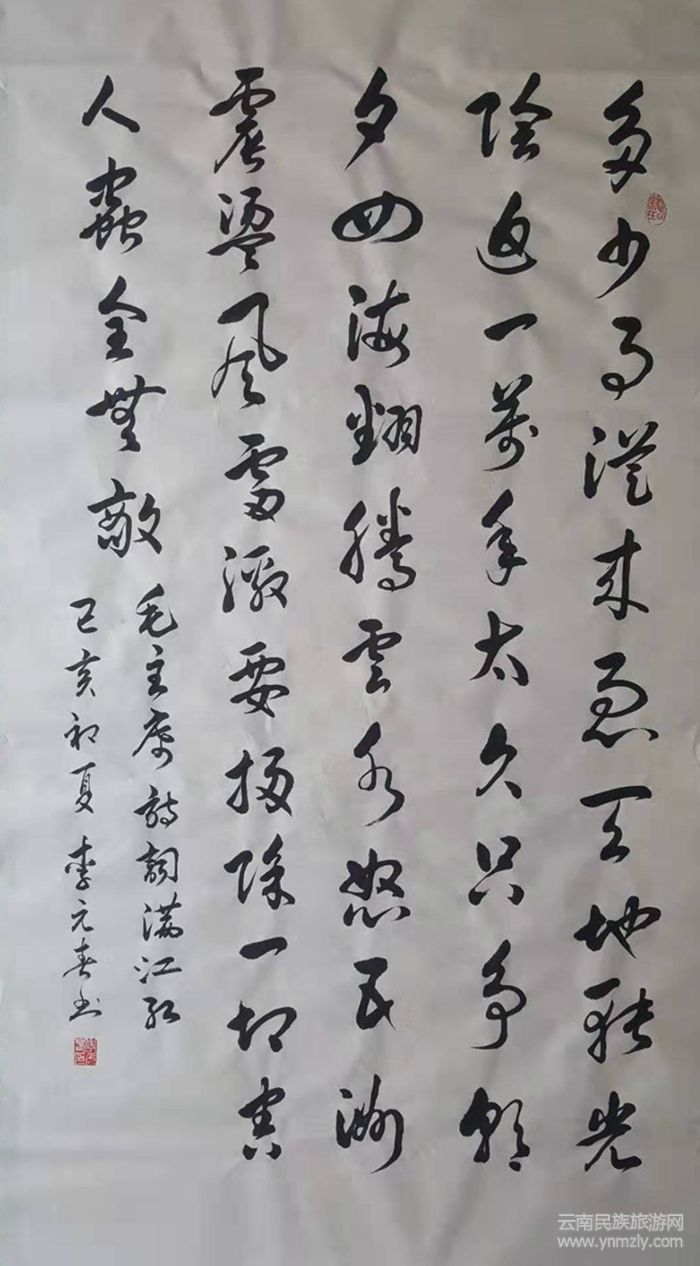 多少事從来急天地转光
陰迫一萬年太久只争朝
夕四海翻騰雲水怒五洲
震盪風雷激要掃除一切害
人蟲全無敵
毛主席詩詞满江红
己亥初夏李元春书
云南民族旅游网
www.ynmzly.com